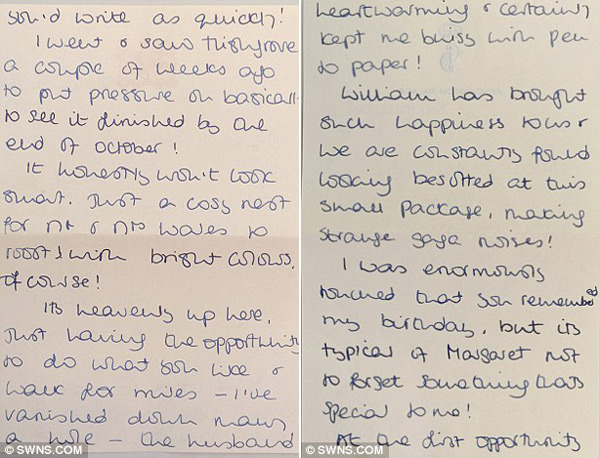 you'd write as quickly!
I went & saw Highgrove
a couple of weeks ago
to put pressure on basicall
to see it finished by the
end of october!
It honestly won't look
smart. Just a cosy nest
for Mr & Mrs Wales to
roost! with bright colours,
of course!
Its heavenly up here,
Just having the opportunity
to do what you like &
walk for miles – I've
vanished down many
a hole – the husband
© SWNS.COM
heartwarming & certainly
kept me busy with pen
to paper!
William has brought
such happiness to us &
we are constantly found
looking besotted at this
small package, making
strange gaga noises!
I was enormously
touched that you remembered
my birthday, but its
typical of Margaret not
to forget something thats
special to me!
At the first opportunity
© SWNS.COM